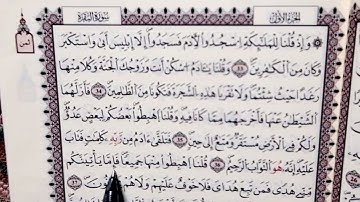 الجزء الأول
سورة البقرة
وَإِذْ قُلْنَا لِلْمَلَٰٓئِكَةِ ٱسْجُدُوا۟ لِـَٔادَمَ فَسَجَدُوٓا۟ إِلَّآ إِبْلِيسَ أَبَىٰ وَٱسْتَكْبَرَ
وَكَانَ مِنَ ٱلْكَٰفِرِينَ وَقُلْنَا يَٰٓـَٔادَمُ ٱسْكُنْ أَنتَ وَزَوْجُكَ ٱلْجَنَّةَ وَكُلَا مِنْهَا
رَغَدًا حَيْثُ شِئْتُمَا وَلَا تَقْرَبَا هَٰذِهِ ٱلشَّجَرَةَ فَتَكُونَا مِنَ ٱلظَّٰلِمِينَ فَأَزَلَّهُمَا
ٱلشَّيْطَٰنُ عَنْهَا فَأَخْرَجَهُمَا مِمَّا كَانَا فِيهِ وَقُلْنَا ٱهْبِطُوا۟ بَعْضُكُمْ لِبَعْضٍ عَدُوٌّ
وَلَكُمْ فِى ٱلْأَرْضِ مُسْتَقَرٌّ وَمَتَٰعٌ إِلَىٰ حِينٍ فَتَلَقَّىٰٓ ءَادَمُ مِن رَّبِّهِۦ كَلِمَٰتٍ فَتَابَ
عَلَيْهِ إِنَّهُۥ هُوَ ٱلتَّوَّابُ ٱلرَّحِيمُ قُلْنَا ٱهْبِطُوا۟ مِنْهَا جَمِيعًا فَإِمَّا يَأْتِيَنَّكُم
مِّنِّى هُدًى فَمَن تَبِعَ هُدَاىَ فَلَا خَوْفٌ عَلَيْهِمْ وَلَا هُمْ